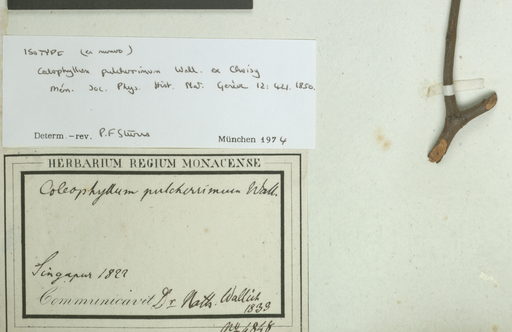 ISOTYPE (ex numero)
Calophyllum pulcherrimum Wall. ex Choisy
Mém. Soc. Phys. Hist. Nat. Genève 12: 421. 1850.
Determ.-rev. P.F Stevens
München 1974
HERBARIUM REGIUM MONACENSE
Coleophyllum pulcherrimum Wall.
Singapur 1822
Communicavit Dr Nath. Wallich
1833
No 4848